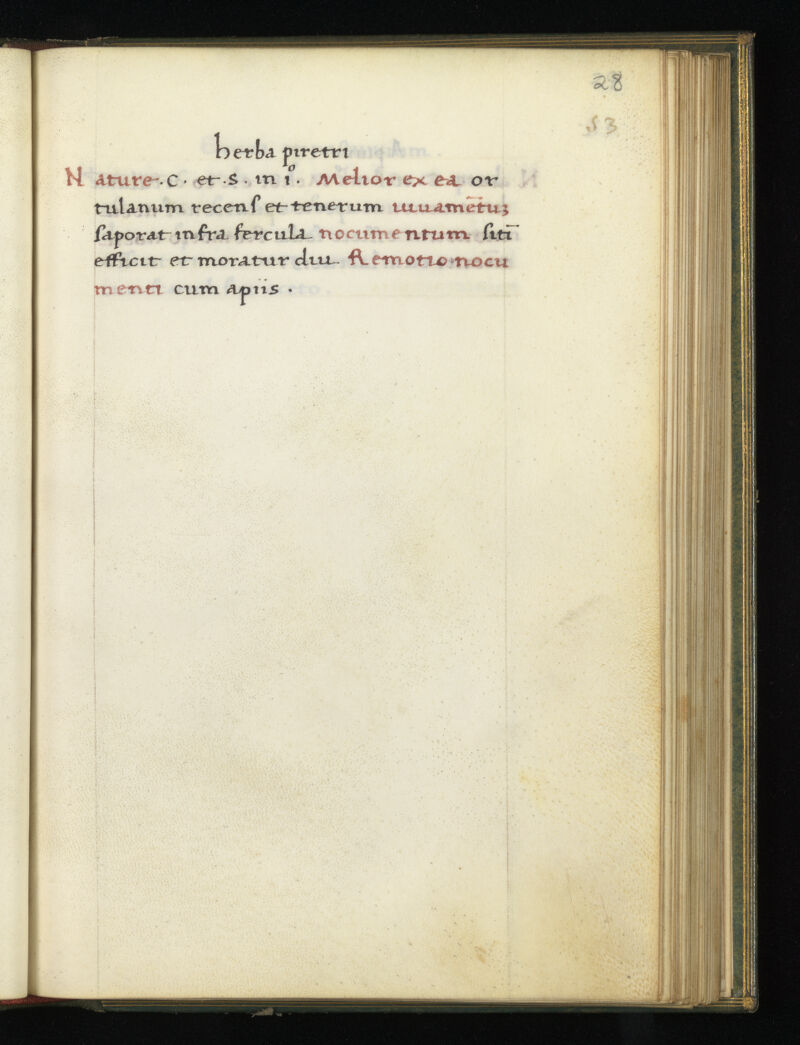 28
53
herba piretri
Nature .C. et .S. in i͛º. Melior ex ea or
tulanum recens et tenerum iuuametuꝫ
saporat infra fercula nocumentum sitī
efficit et moratur diu Remotio nocu
menti cum apiis .